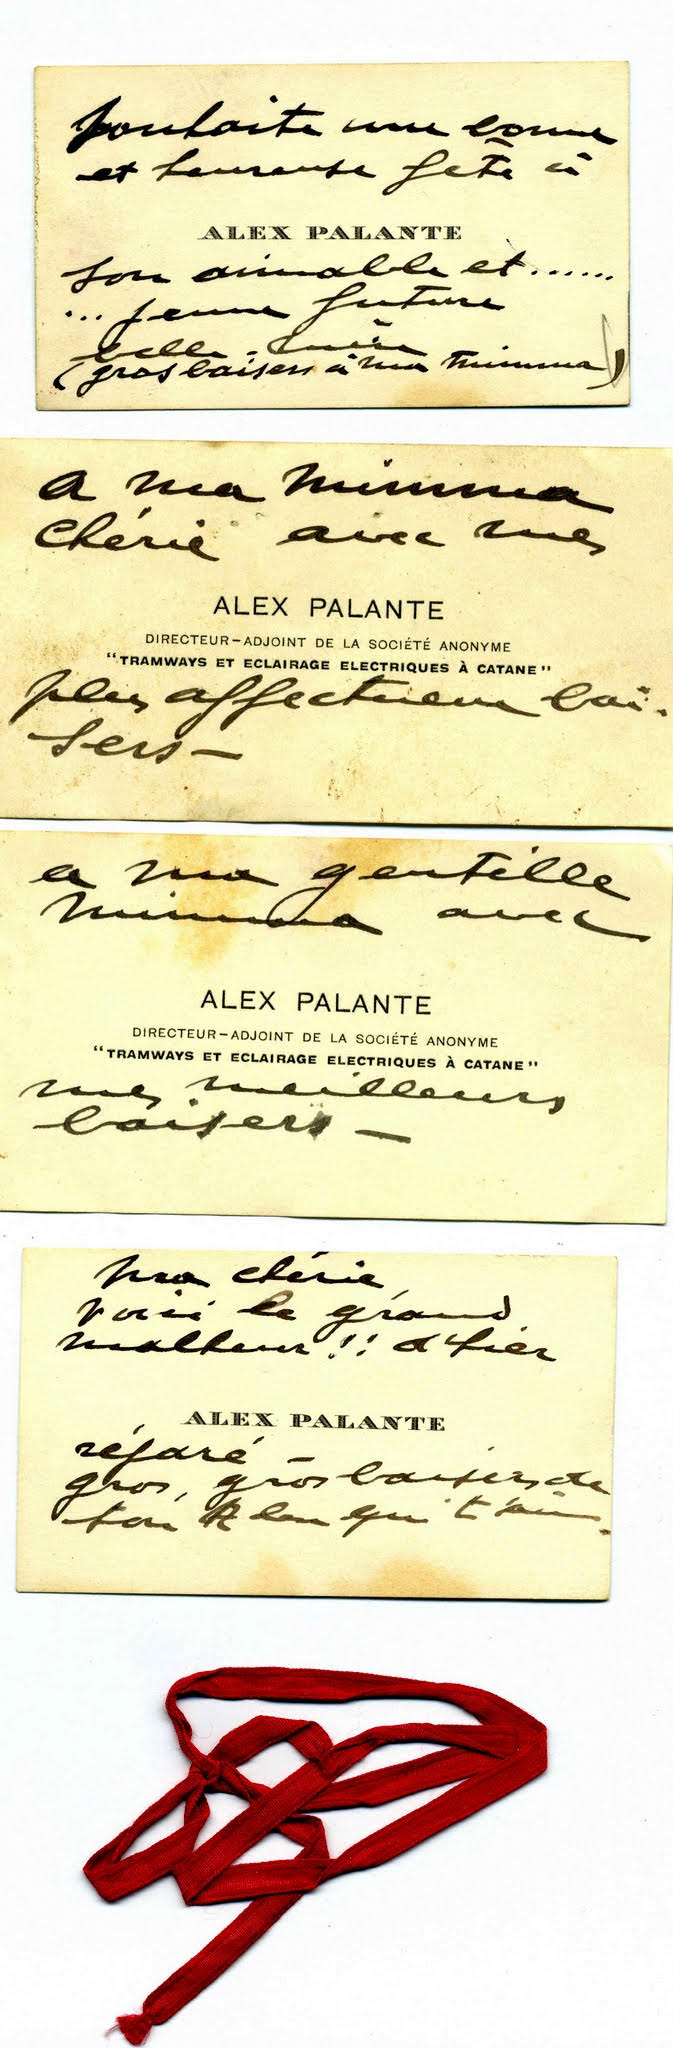 souhaite une bonne
et heureuse fête à
ALEX PALANTE
son aimable et ......
... jeune future
belle-mère
(gros baisers à ma mimma)
A ma mimma
chérie avec mes
ALEX PALANTE
DIRECTEUR-ADJOINT DE LA SOCIÉTÉ ANONYME
"TRAMWAYS ET ECLAIRAGE ELECTRIQUES À CATANE"
plus affectueux bai-
sers —
a ma gentille
mimma avec
ALEX PALANTE
DIRECTEUR-ADJOINT DE LA SOCIÉTÉ ANONYME
"TRAMWAYS ET ECLAIRAGE ELECTRIQUES À CATANE"
mes meilleurs
baisers —
Ma chérie
voici le grand
malheur!! d'hier
ALEX PALANTE
réparé —
gros, gros baisers de
ton qui t'aime.